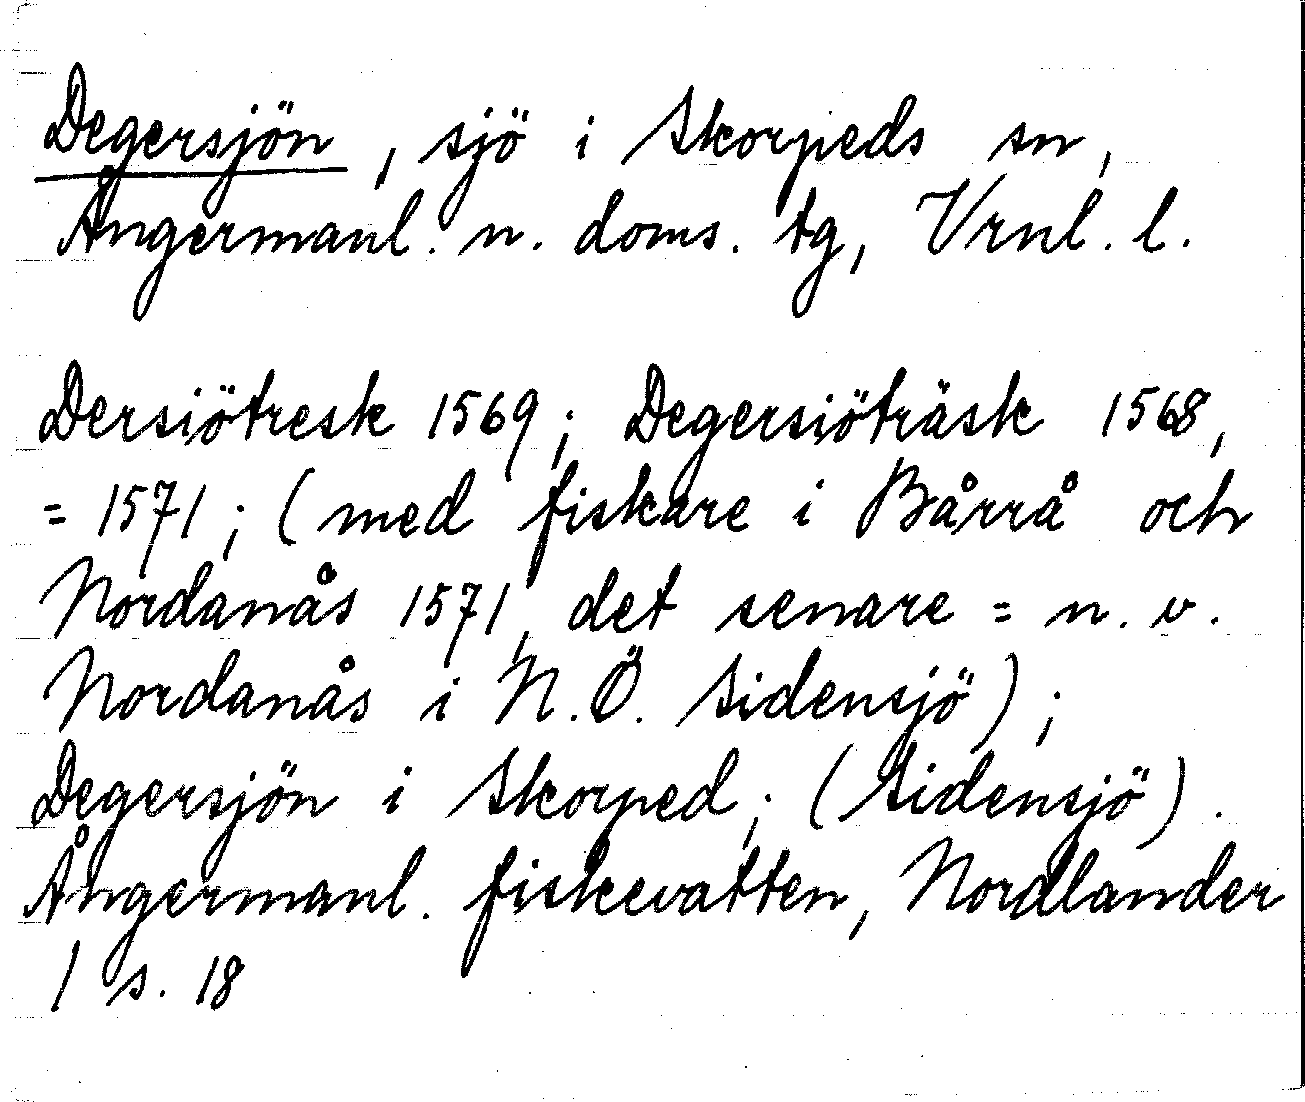 Degersjön, sjö i Skorpeds sn,
Ångermanl. n. doms. tg, Vrnl. l.
Dersiötresk 1569; Degersiöträsk 1568,
= 1571; (med fiskare i Bårrå och
Nordanås 1571, det senare = n. v.
Nordanås i N.Ö. Sidensjö);
Degersjön i Skorped; (Sidensjö).
Ångermanl. fiskevatten, Nordlander
1 s. 18